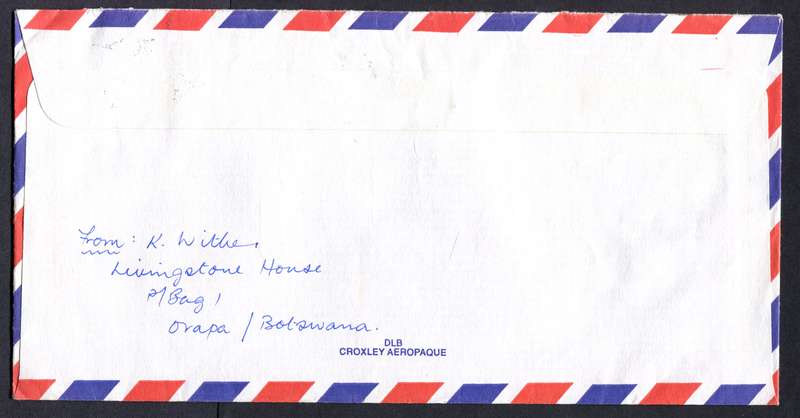 From: K. Withe.
Livingstone House
P/Bag 1
Orapa / Botswana.
DLB
CROXLEY AEROPAQUE